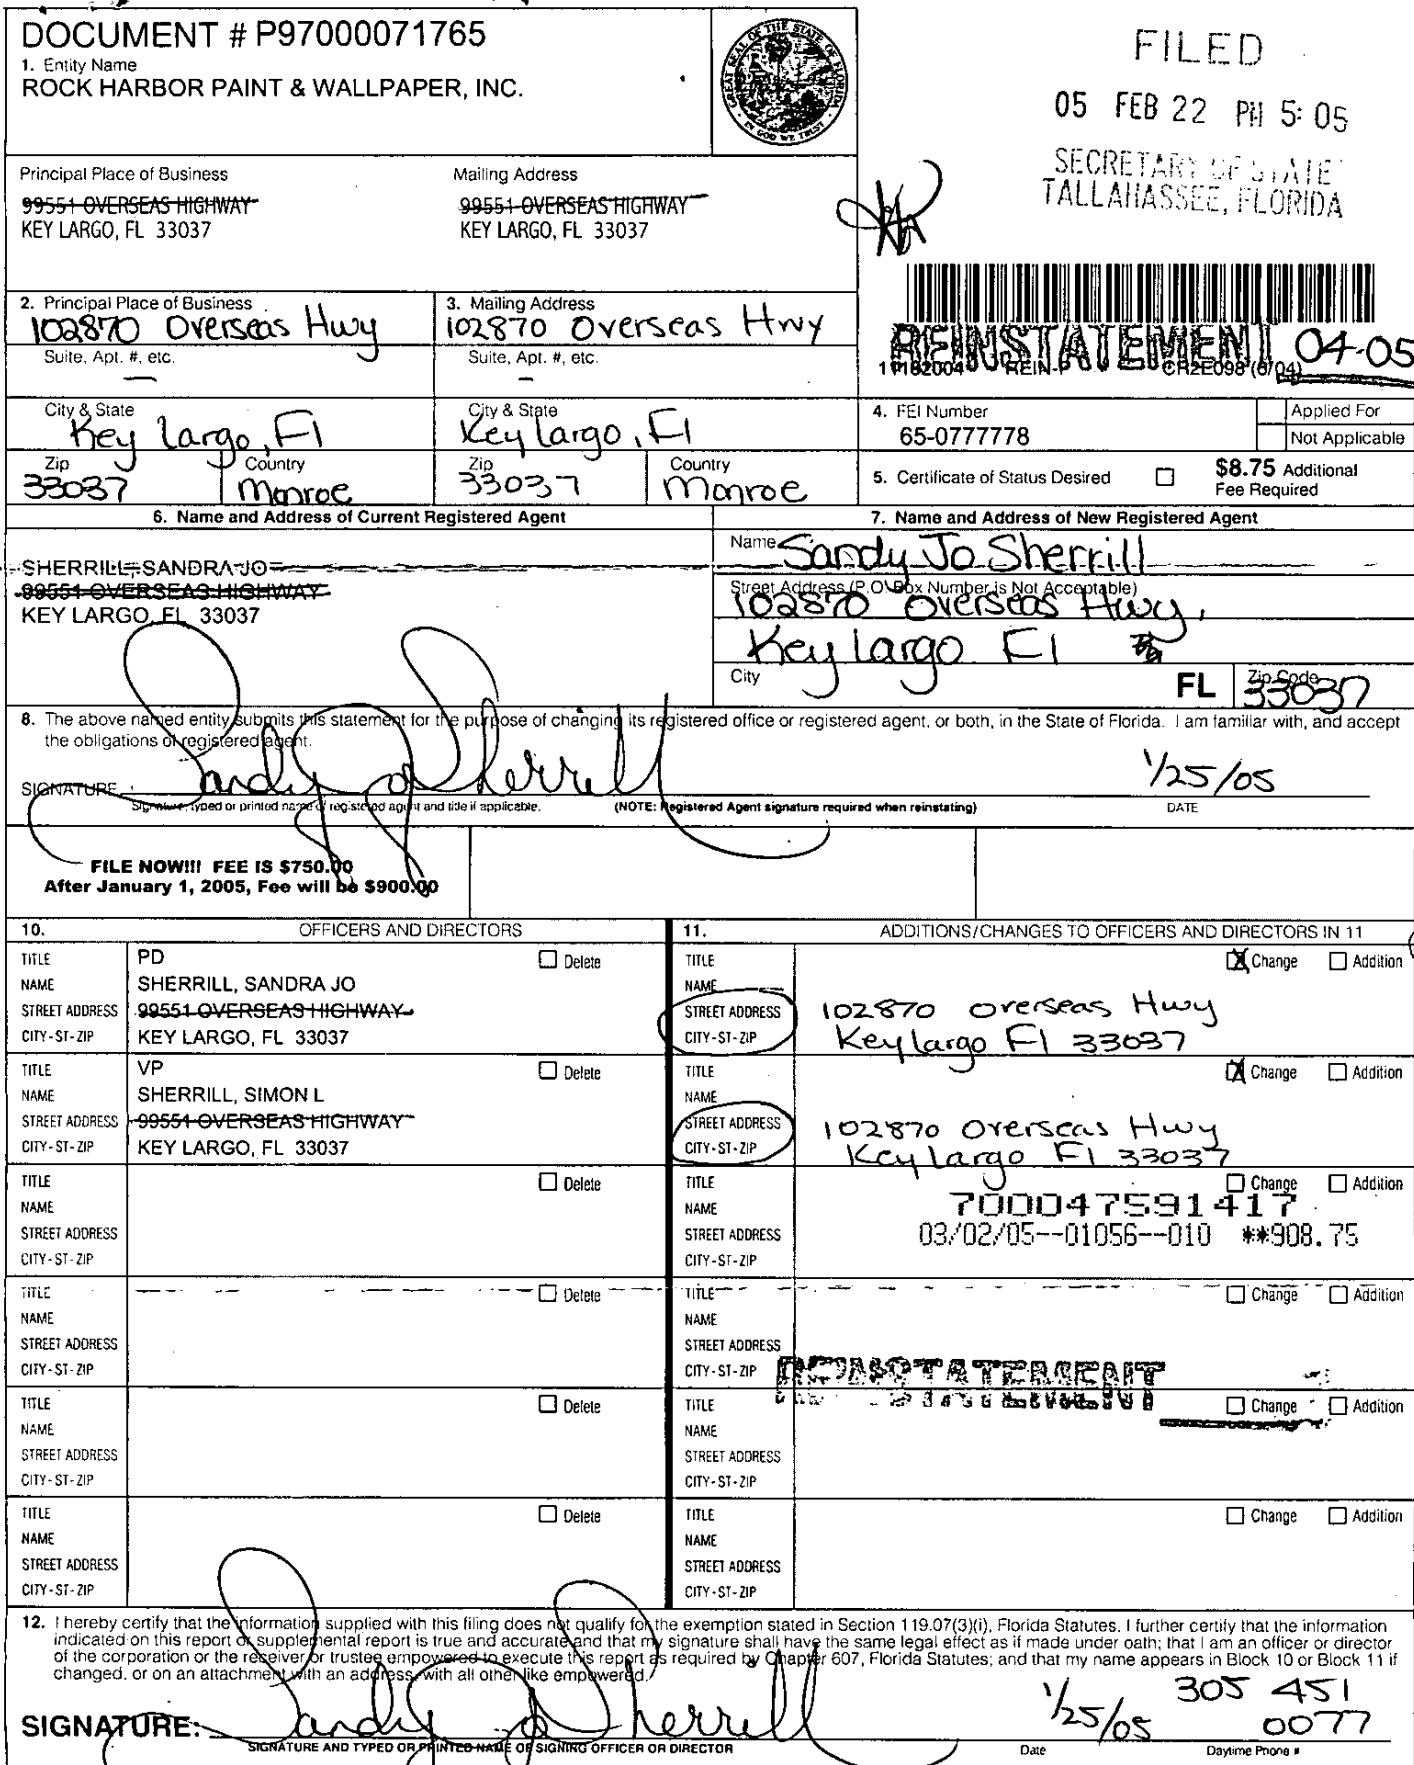 DOCUMENT # P97000071765
1. Entity Name
ROCK HARBOR PAINT & WALLPAPER, INC.
GREAT SEAL OF THE STATE OF FLORIDA
IN GOD WE TRUST
FILED
05 FEB 22 PM 5:05
SECRETARY OF STATE
TALLAHASSEE, FLORIDA
Principal Place of Business
99551 OVERSEAS HIGHWAY
KEY LARGO, FL 33037
Mailing Address
99551 OVERSEAS HIGHWAY
KEY LARGO, FL 33037
2. Principal Place of Business
102870 Overseas Hwy
Suite, Apt. #, etc.
—
City & State
Key Largo, Fl
Zip
33037
Country
Monroe
3. Mailing Address
102870 Overseas Hwy
Suite, Apt. #, etc.
—
City & State
Key Largo, Fl
Zip
33037
Country
Monroe
REINSTATEMENT 04-05
11182004 REIN-P CR2E098 (6/04)
4. FEI Number
65-0777778
Applied For
Not Applicable
5. Certificate of Status Desired
$8.75 Additional
Fee Required
6. Name and Address of Current Registered Agent
SHERRILL, SANDRA JO
99551 OVERSEAS HIGHWAY
KEY LARGO, FL 33037
7. Name and Address of New Registered Agent
Name Sandy Jo Sherrill
Street Address (P.O. Box Number is Not Acceptable)
102870 Overseas Hwy,
Key Largo Fl
City FL Zip Code
33037
8. The above named entity submits this statement for the purpose of changing its registered office or registered agent, or both, in the State of Florida. I am familiar with, and accept
the obligations of registered agent.
SIGNATURE Sandy Jo Sherrill 1/25/05
Signature, typed or printed name of registered agent and title if applicable. (NOTE: Registered Agent signature required when reinstating) DATE
FILE NOW!!! FEE IS $750.00
After January 1, 2005, Fee will be $900.00
10. OFFICERS AND DIRECTORS
TITLE PD Delete
NAME SHERRILL, SANDRA JO
STREET ADDRESS 99551 OVERSEAS HIGHWAY
CITY-ST-ZIP KEY LARGO, FL 33037
TITLE VP Delete
NAME SHERRILL, SIMON L
STREET ADDRESS 99551 OVERSEAS HIGHWAY
CITY-ST-ZIP KEY LARGO, FL 33037
TITLE Delete
NAME
STREET ADDRESS
CITY-ST-ZIP
TITLE Delete
NAME
STREET ADDRESS
CITY-ST-ZIP
TITLE Delete
NAME
STREET ADDRESS
CITY-ST-ZIP
TITLE Delete
NAME
STREET ADDRESS
CITY-ST-ZIP
11. ADDITIONS/CHANGES TO OFFICERS AND DIRECTORS IN 11
TITLE X Change Addition
NAME
STREET ADDRESS 102870 Overseas Hwy
CITY-ST-ZIP Key Largo Fl 33037
TITLE X Change Addition
NAME
STREET ADDRESS 102870 Overseas Hwy
CITY-ST-ZIP Key Largo Fl 33037
TITLE Change Addition
NAME 700047591417
STREET ADDRESS 03/02/05--01056--010 **908.75
CITY-ST-ZIP
TITLE Change Addition
NAME
STREET ADDRESS
CITY-ST-ZIP REINSTATEMENT
TITLE Change Addition
NAME
STREET ADDRESS
CITY-ST-ZIP
TITLE Change Addition
NAME
STREET ADDRESS
CITY-ST-ZIP
12. I hereby certify that the information supplied with this filing does not qualify for the exemption stated in Section 119.07(3)(i), Florida Statutes. I further certify that the information
indicated on this report or supplemental report is true and accurate and that my signature shall have the same legal effect as if made under oath; that I am an officer or director
of the corporation or the receiver or trustee empowered to execute this report as required by Chapter 607, Florida Statutes; and that my name appears in Block 10 or Block 11 if
changed, or on an attachment with an address, with all other like empowered.
SIGNATURE: Sandy Jo Sherrill 1/25/05 305 451
0077
SIGNATURE AND TYPED OR PRINTED NAME OF SIGNING OFFICER OR DIRECTOR Date Daytime Phone #